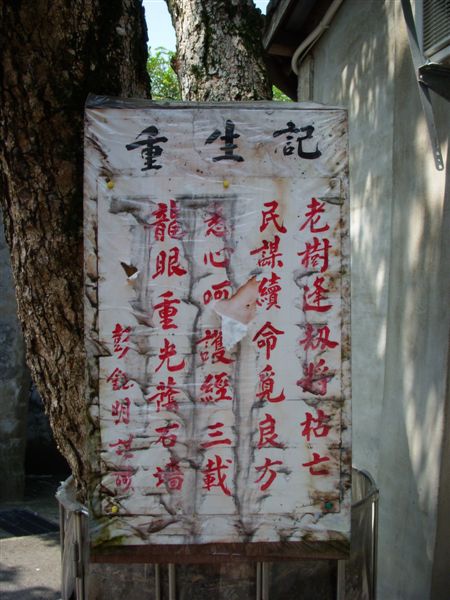 重生記
老樹逢刼將枯亡
民謀續命覓良方
悉心呵護經三載
龍眼重光舊石墻
彭鈺明